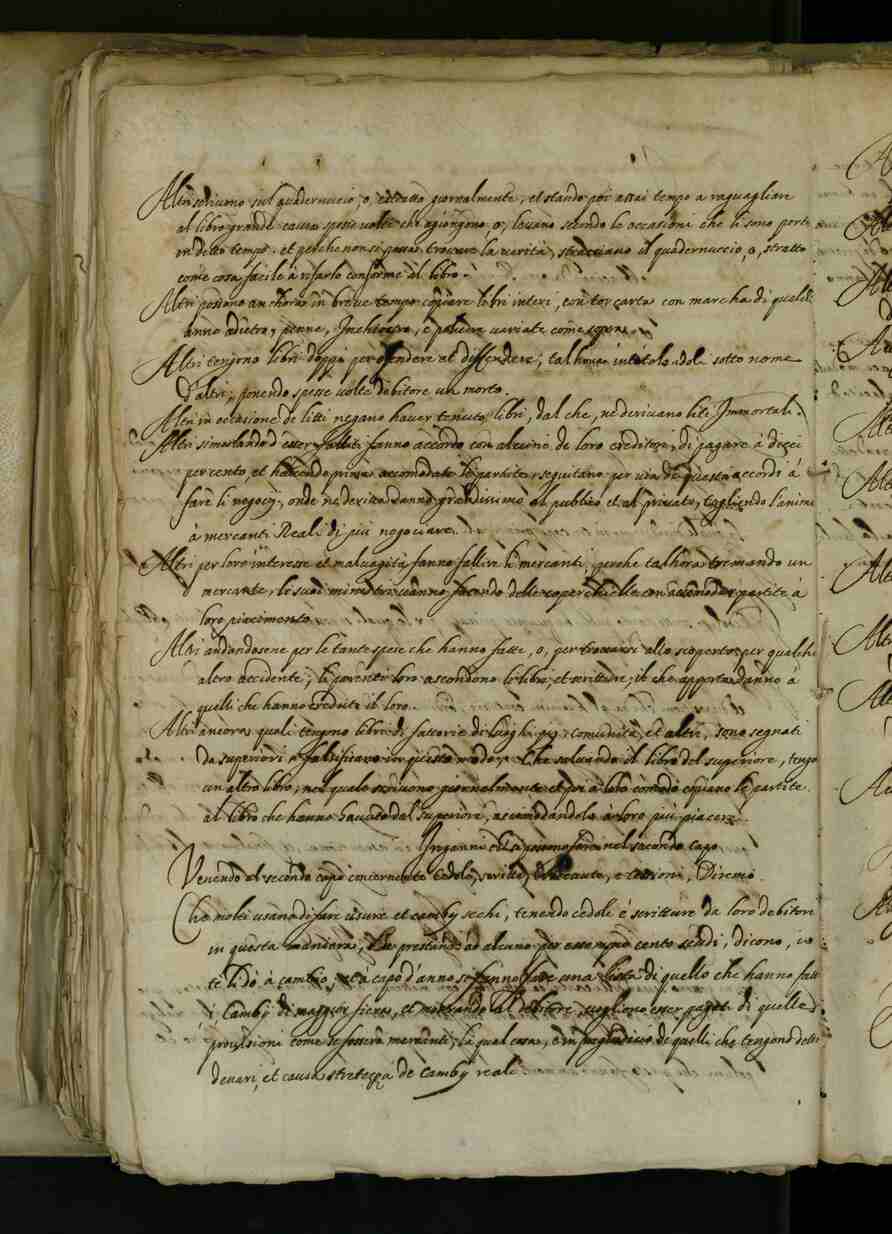 Altri scrivono sul quadernuccio, o, estratto giornalmente, et stando poi assai tempo a raguagliare
al libro grande causa spesse volte che agiongono, o, levano secondo le occasioni che li sono porte
in detto tempo. et perche non si possa trovare la verità, stracciano il quadernuccio, o, stratto
come cosa facile à rifarlo conforme al libro.
Altri possono anchora in breve tempo copiare libri interi, con tor carta con marcha di qualche
anno adietro, penne, Inchiostro, e polvere variate come sopra.
Altri tengono libri doppi per offendere et diffendere, talhora intitolandoli sotto nome
d'altri, ponendo spesse volte debitore un morto.
Altri in occasione de litti negano haver tenuto libri, dal che, ne derivano liti Immortali.
Altri simulando d'esser falliti fanno accordo con alcuni de loro creditori, di pagare à dieci
per cento, et havendo prima accomodato le partite, seguitano per via de questi accordi à
fare li negocij, onde ne risulta danno grandissimo al publico et al privato, togliendo l'animo
à mercanti Reali di più negociare.
Altri per loro interesse et malvagità fanno fallire li mercanti, perche talhora tremando un
mercante, li suoi ministri vanno facendo delle coperchielle con accomodar partite à
loro piacimento.
Altri andandosene per le tante spese che hanno fatte, o, per trovarsi allo scoperto, per qualche
altro accidente, li parenti loro ascondono li libri, et scritture, il che apporta danno à
quelli che hanno creduto il loro.
Altri ancora quali tengono libri di fattorie di luoghi pij, comunità, et altri, sono segnati
da superiori, falsificano in questo modo, Che salvando il libro del superiore, tengono
un altro libro, nel quale scrivono giornalmente et poi à loro comodo copiano le partite
al libro che hanno havuto dal superiore, accomodandole à loro più piacere.
Inganni che si possono fare nel secondo capo
Venendo al secondo capo concernente cedole, scritti, e cessioni, Diremo
Che molti usano di fare usure et camby sechi, tenendo cedole è scritture da loro debitori
in questa maniera, Che prestando ad alcuno per essempio cento scudi, dicono, io
te li dò à cambio, et à capo d'anno si fanno fare una lista di quello che hanno fatto
i Camby di maggior fiere, et mostrando al debitore, vogliono esser pagati di quelle
provisioni come se fossero mercanti, la qual cosa, è in pregiudicio di quelli che tengono detti
denari, et causa strettezza de Camby reali.